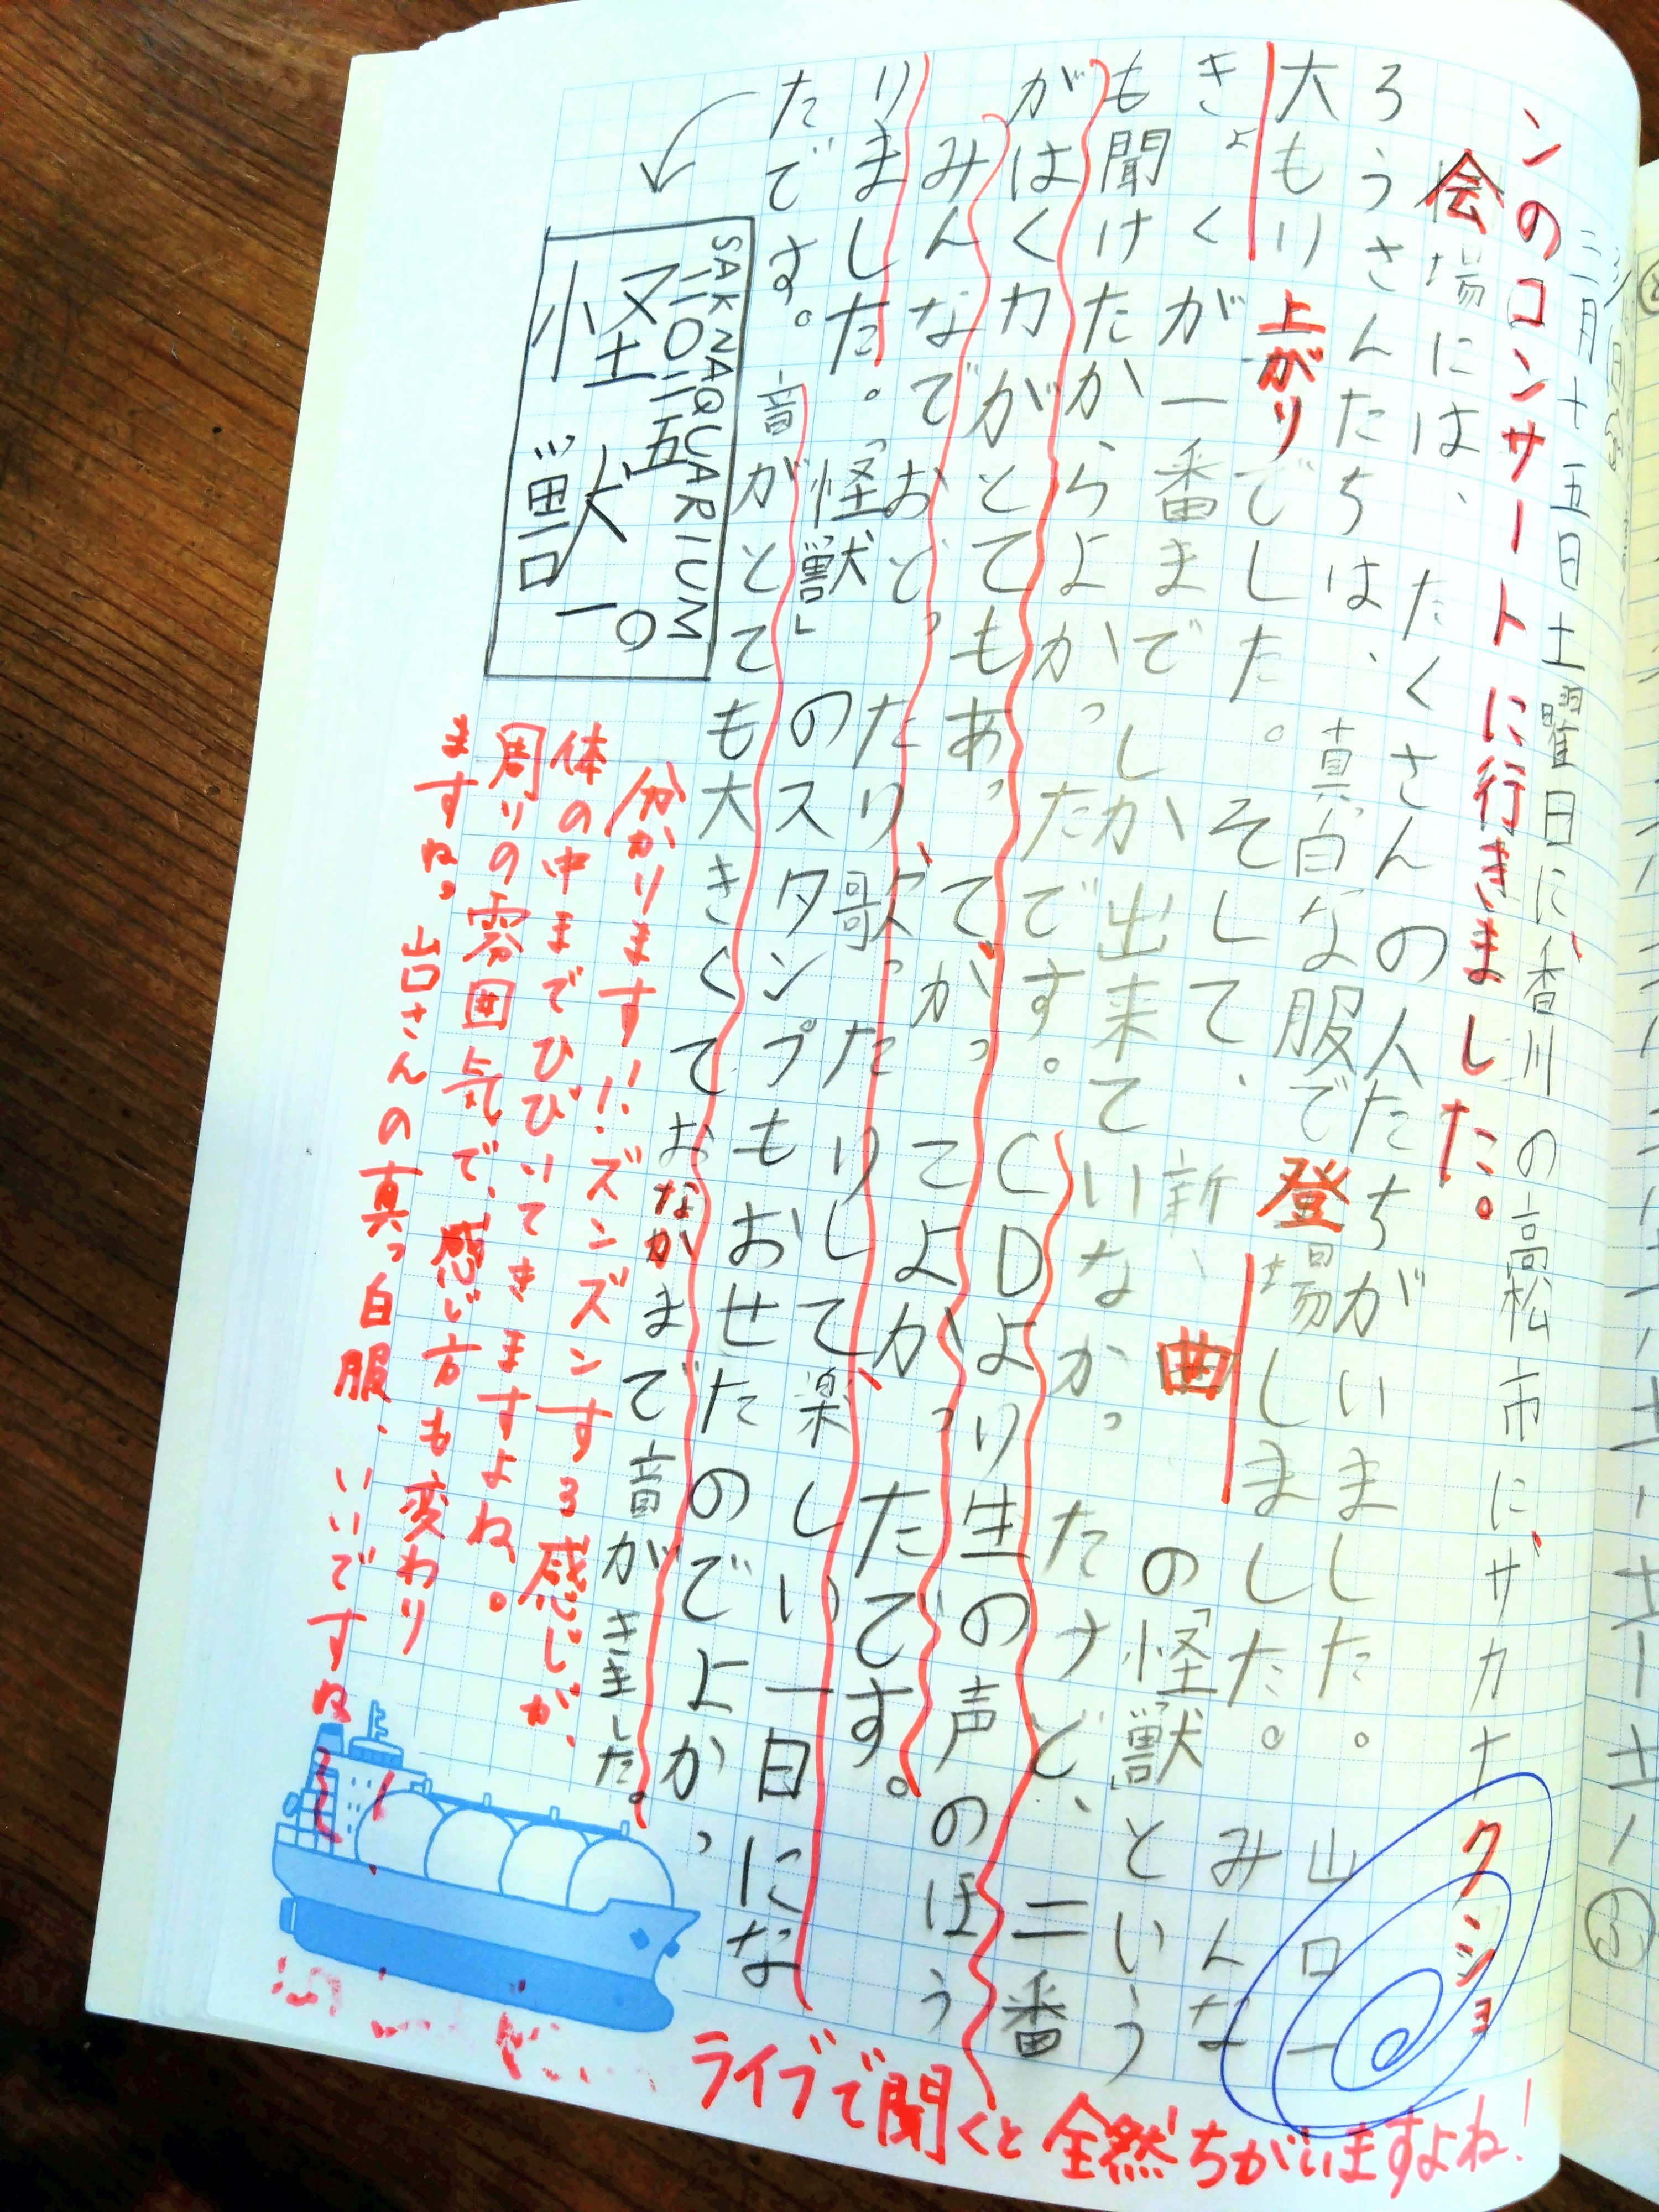 三月十五日土曜日に、香川の高松市に、サカナクショ
ンのコンサートに行きました。
会場には、たくさんの人たちがいました。山口一
ろうさんたちは、真白な服で登場しました。みんな
大もり上がりでした。そして、新曲の「怪獣」という
きょくが一番までしか出来ていなかったけど、二番
も聞けたからよかったです。CDより生の声のほう
がはくカがとてもあってかっこよかったです。
みんなでおどったり歌ったりして楽しい一日にな
りました。「怪獣」のスタンプもおせたのでよかっ
たです。音がとても大きくておなかまで音がきました。
SAKNAQUARIUM
二〇二五
怪獣
分かります!!ズンズンする感じが、
体の中までひびいてきますよね。
周りの雰囲気で、感じ方も変わり
ますね。山口さんの真っ白服、いいですね
ライブで聞くと全然ちがいますよね!